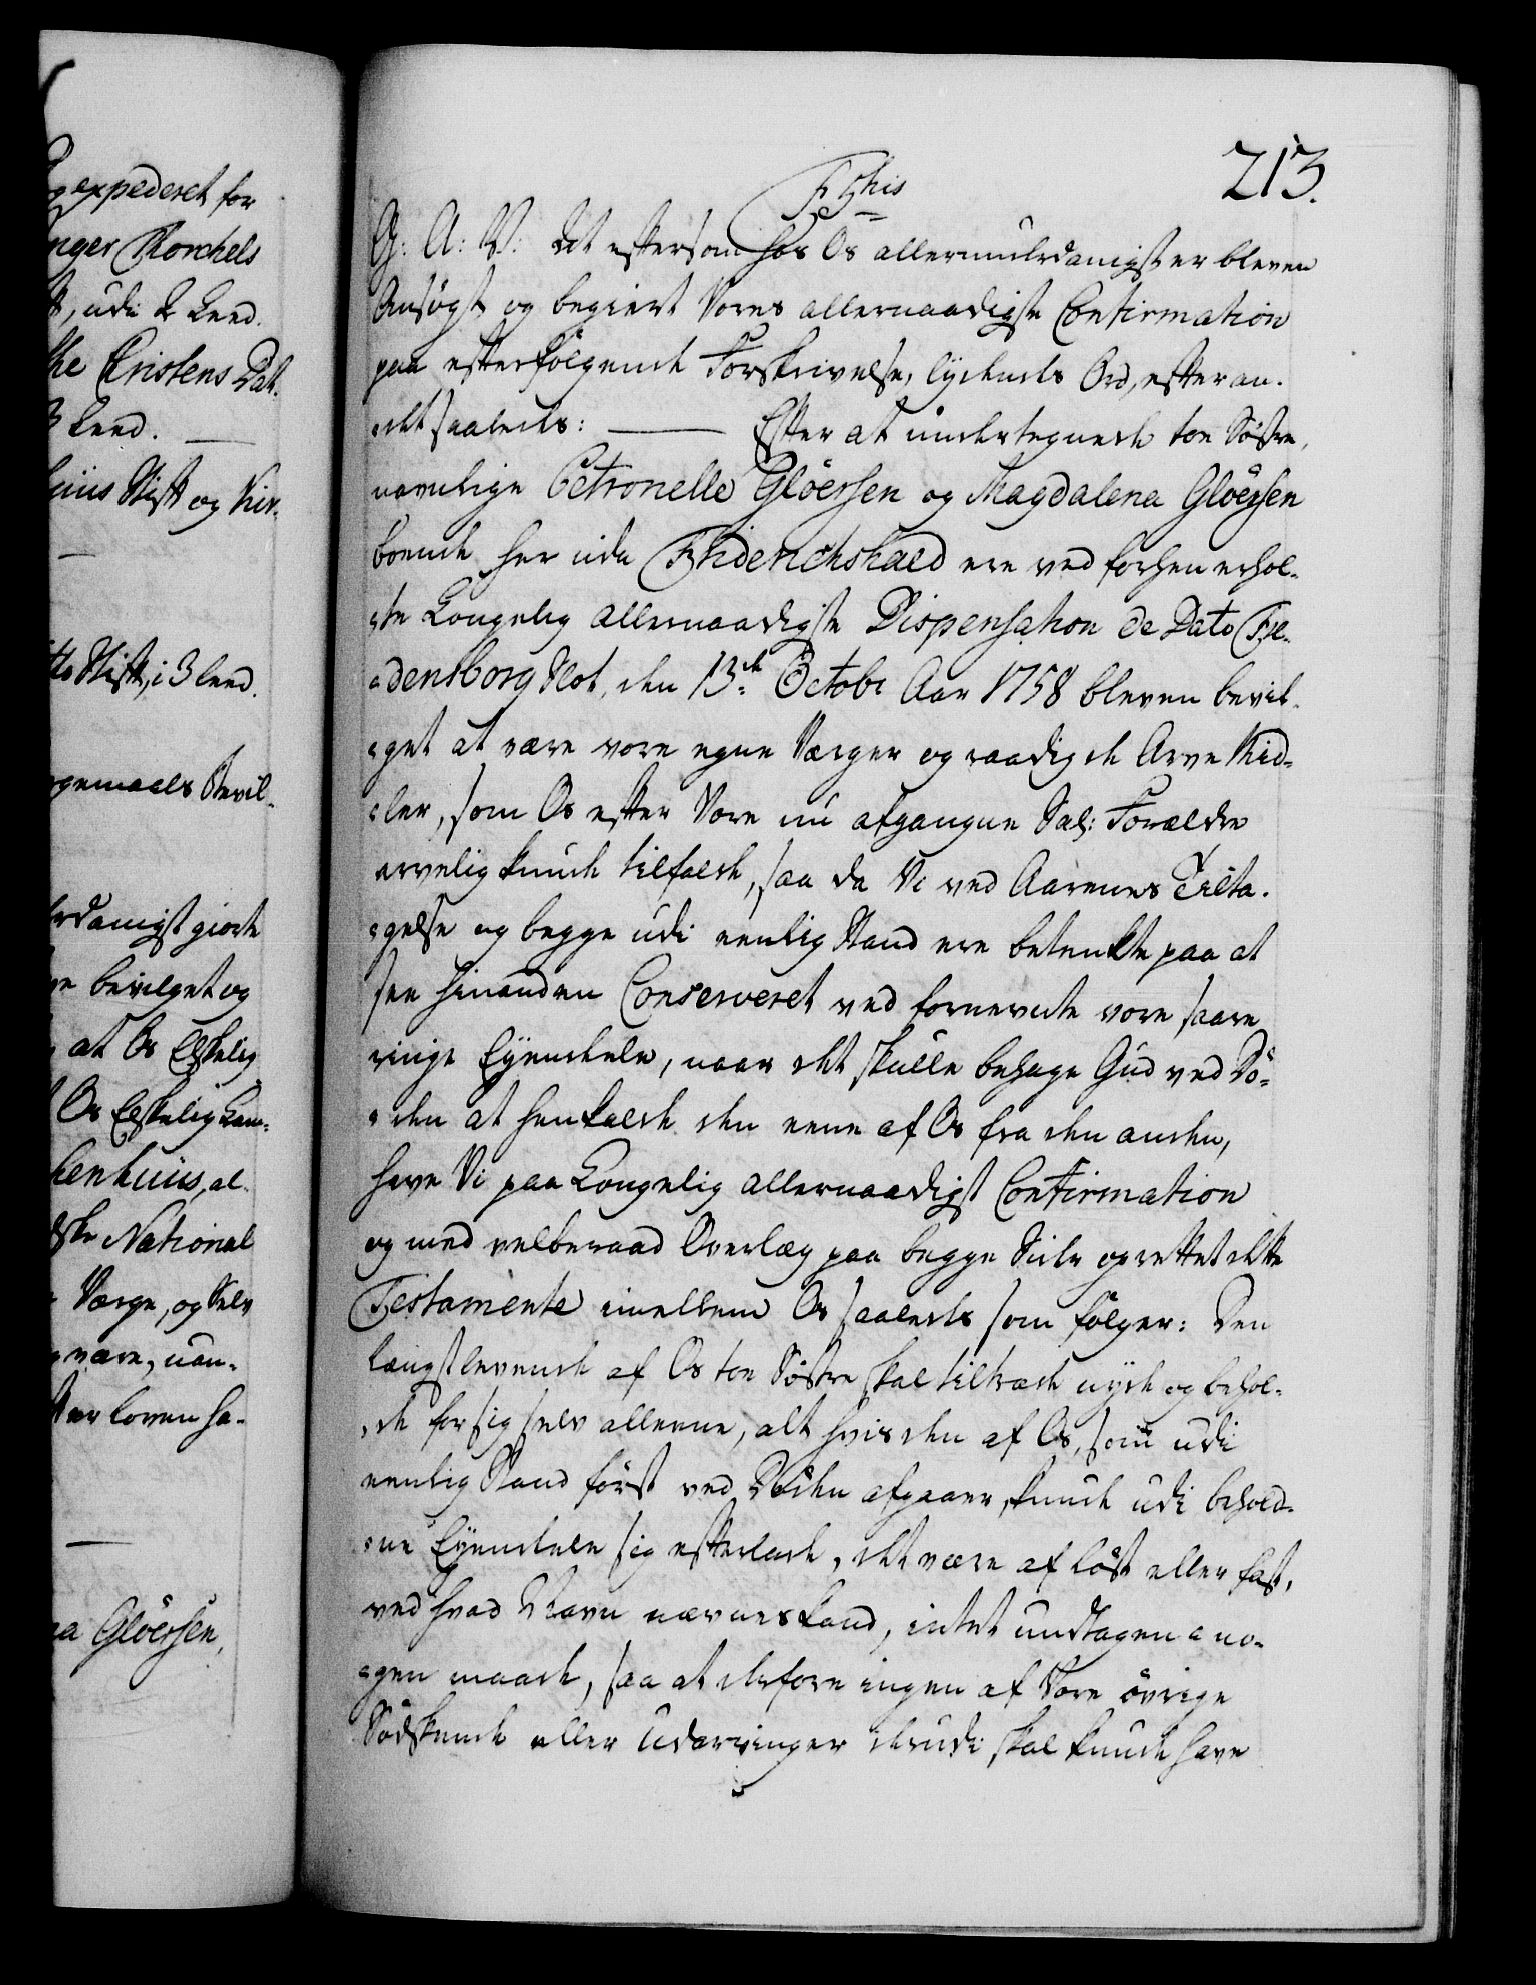 g expederet for
nger Rorchels
, udi 2 Leed.
the Cristens Dat.
3 Leed.
huus Stift og Kir-
Stift, i 3 leed.
gemaals Bevil-
rdanigst giorte
bevilget og
at Os Elskelig
Os Elskelig Cam-
kenhuus, al-
ske National
Værge, og Selv
være, uan-
ter loven ha-
na Glöersen,
213.
F 5this
G: A: V: at eftersom hos Os allerunderdanigst er bleven
Ansögt og begiert Vores allernaadigste Confirmation
paa efterfölgende Forskrivelse, lydende Ord, efter an-
det saaledes: Efter at undertegnede toe Söstre,
navnlige Petronelle Glöersen og Magdalena Glöersen
boende her udi Friderichshald ere ved forhen erhol-
te Kongelig allernaadigste Dispensation de Dato Fre-
densborg Slot, den 13de Octobr Aar 1758 bleven bevil-
get at være vore egne Værger og raadig de Arve Mid-
ler, som Os efter Vore nu afgangne Sal: Forældre
arvelig kunde tilfalde, saa da Vi ved Aarenes Tilta-
gelse og begge udi eenlig Stand ere betenkte paa at
see hinanden Conserveret ved fornevnte vore saare
ringe Eyendele, naar det skulle behage Gud ved Dö-
den at henkalde den eene af Os fra den anden,
have Vi paa Kongelig allernaadigst Confirmation
og med velberaad Overlæg paa begge Sider oprettet dette
Testamente imellem Os saaledes som fölger: Den
længstlevende af Os toe Söstre skal tiltræde nyde og behol-
de for sig selv alleene, alt hvis den af Os, som udi
eenlig Stand först ved Döden afgaaer, kunde udi behold-
ne Eyendele sig efterlade, det være af löst eller fast,
ved hvad Navn nævnes kand, intet undtagen i no-
gen maade, saa at derfore ingen af Vore övrige
Södskende eller Udarvinger derudi skal kunde have